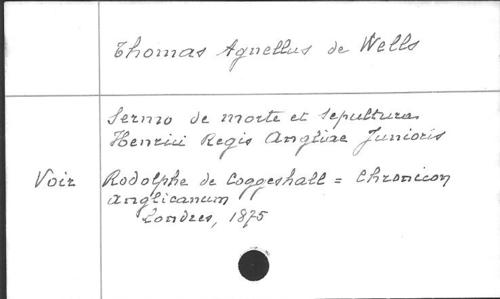 Thomas Agnellus de Wells
Sermo de morte et sepultura
Henrici Regis Angliae Junioris
Voir Rodolphe de Coggeshall = Chronicon
Anglicanum
Londres, 1875